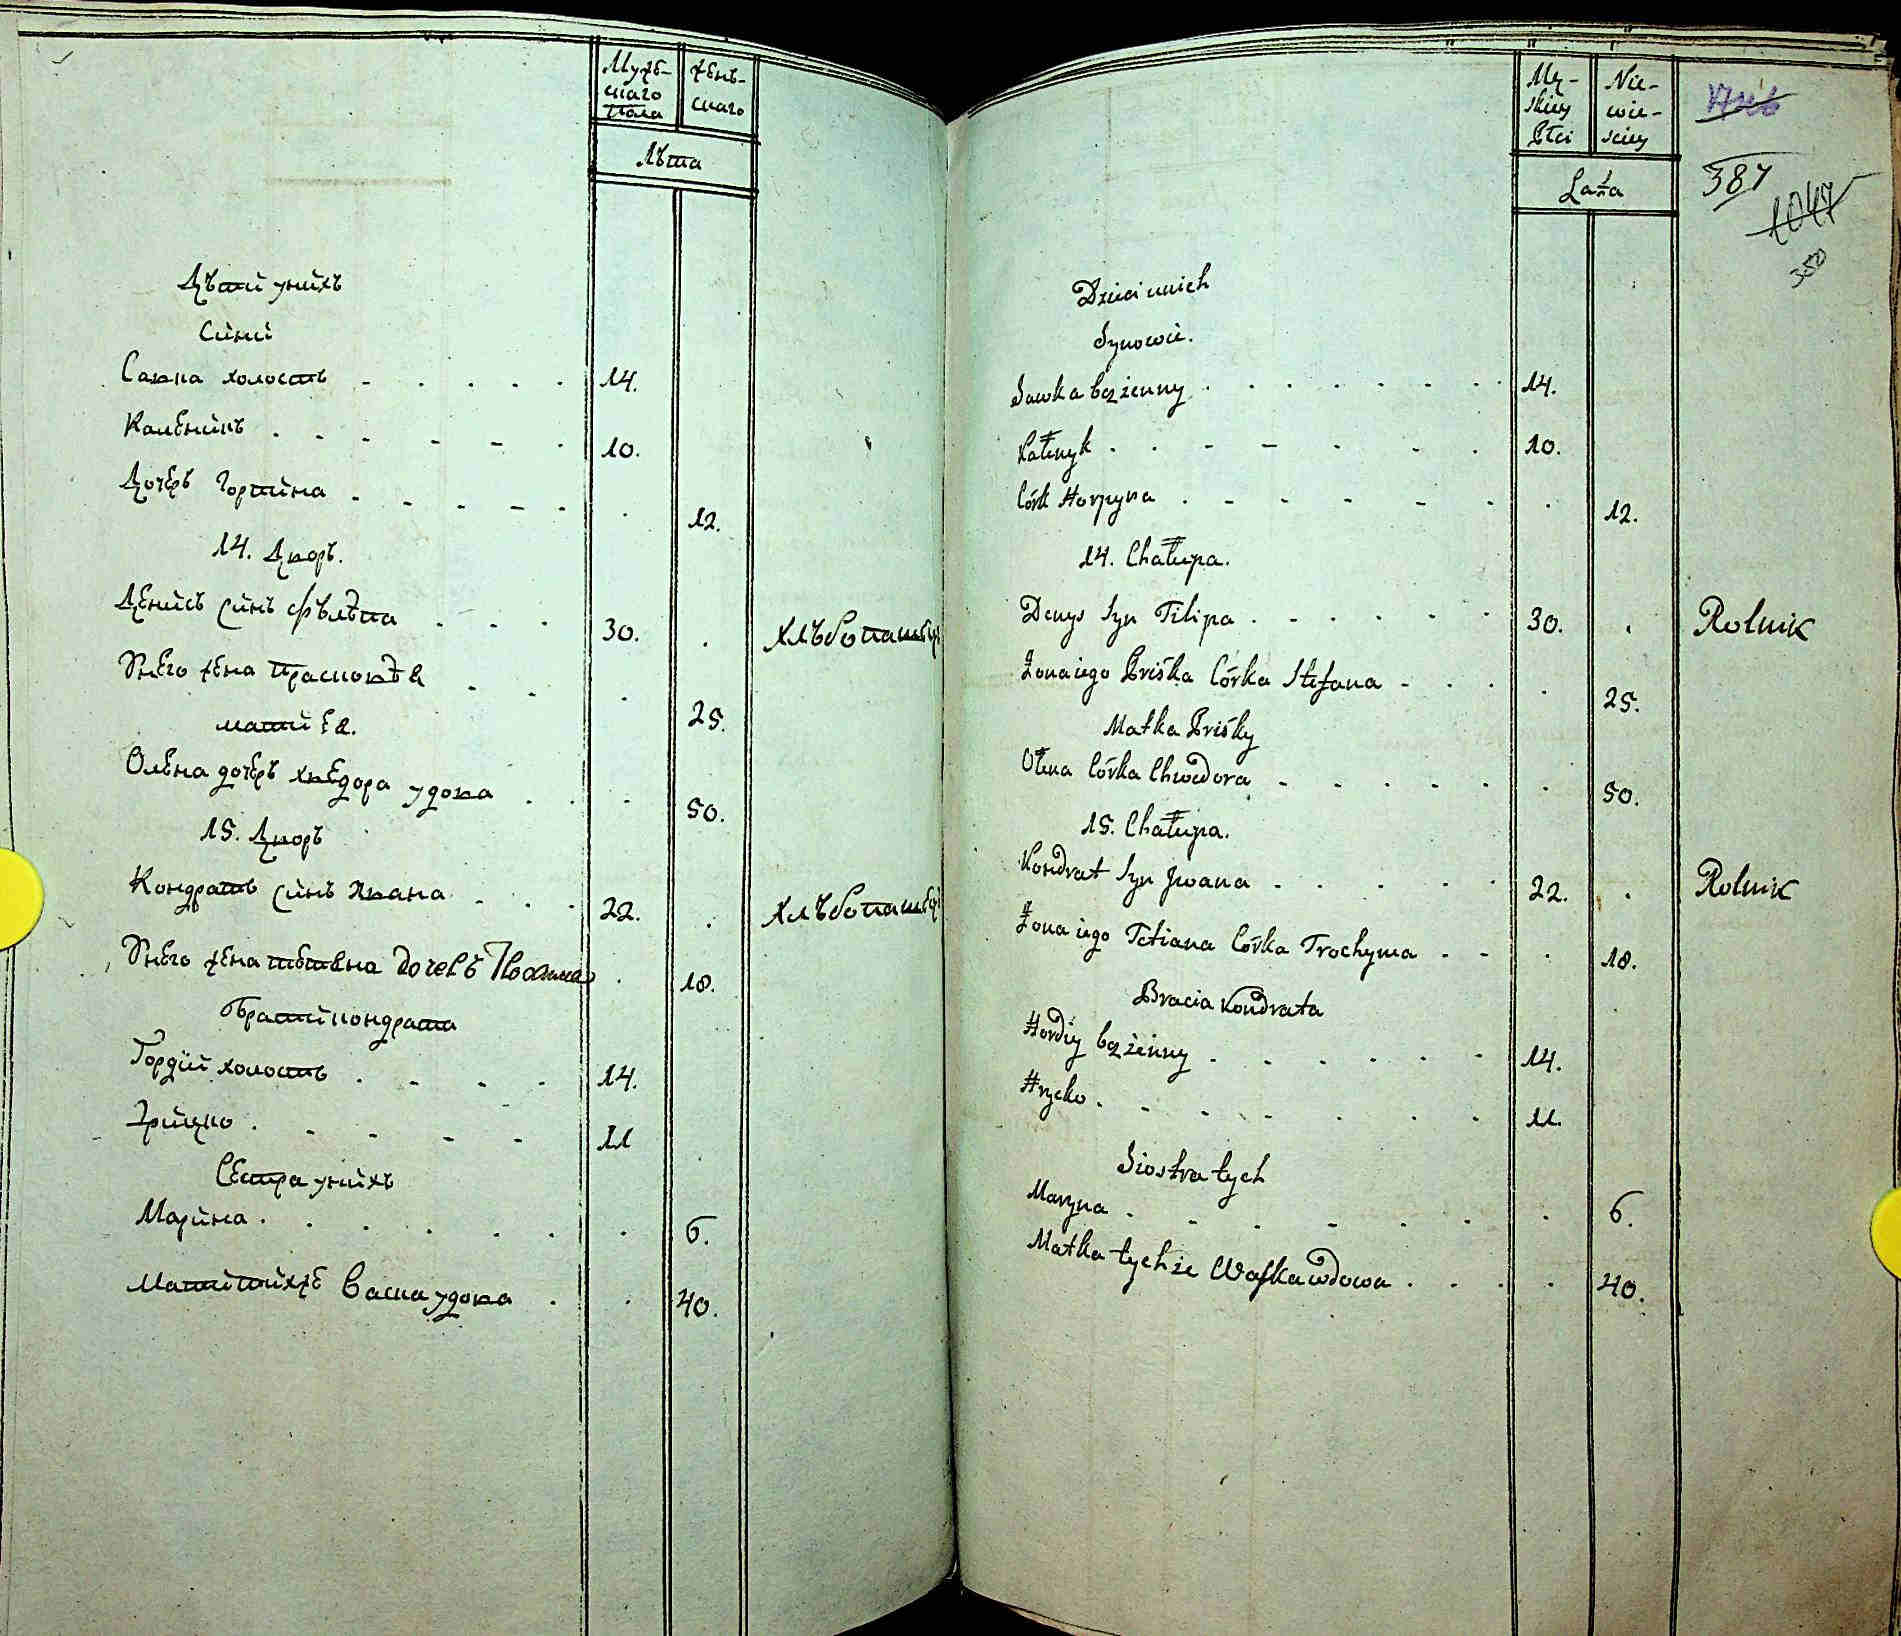 Муже-
скаго
пола
женъ-
скаго
Лѣта
Дѣти унихъ
Сини
Савка холостъ 14.
Каленикъ 10.
Дочеръ Горпина 12.
14. Дворъ.
Денисъ синъ Фѣлѣпа 30. Хлѣбопашецъ
Унего жена Прасковѣя 25.
мати ея.
Олена дочеръ Хведора удова 50.
15. Дворъ
Кондратъ синъ Ивана 22. Хлѣбопашецъ
Унего жена Тетяна дочеръ Трохима 18.
Брати Кондрата
Гордій холостъ 14.
Грицко 11
Сестра унихъ
Марина 6.
Мати тихже Васка удова 40.
Mę-
skiey
Płci
Nie-
wie-
sciey
Lata
387
1047
350
Dzieci unich
Synowie.
Sawka bezżenny 14.
Kałenyk 10.
Córk Horpyna 12.
14. Chałupa.
Denys Syn Filipa 30. Rolnik
Żona iego Priśka Córka Stefana 25.
Matka Priśky
Ołena Córka Chwedora 50.
15. Chałupa.
Kondrat Syn Jwana 22. Rolnik
Żona iego Tetiana Córka Trochyma 18.
Bracia Kondrata
Hordiy bezżenny 14.
Hrycko 11.
Siostra tych
Maryna 6.
Matka tychże Waska wdowa 40.